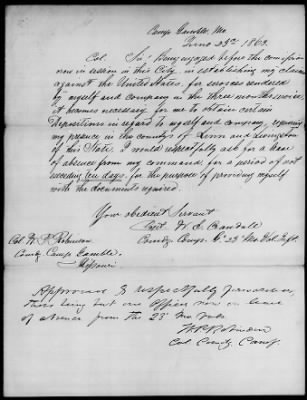 Camp Gamble, Mo
June 23rd 1862
Col. Sir; Being engaged before the comission
now in session in this City, in establishing my claim
against the United States, for services rendered
by myself and company in the three months service,
it becomes necessary for me to obtain certain
depositions in regard to myself and company, requiring
my presence in the county of Linn and Livingston
of this State. I would respectfully ask for a leave
of absence from my command, for a period of not
exceeding ten days, for the purpose of providing myself
with the documents required.
Your obedient Servant
Capt. W. E. Crandall
Comdg Comp. G. 23 Mo Vol. Inft.
Col. W. P. Robinson
Comdg Camp Gamble
Missouri
Approved & respectfully forwarded,
there being but one officer now on leave
of absence from the 23 Mo Vols
W P Robinson
Col Comdg Camp